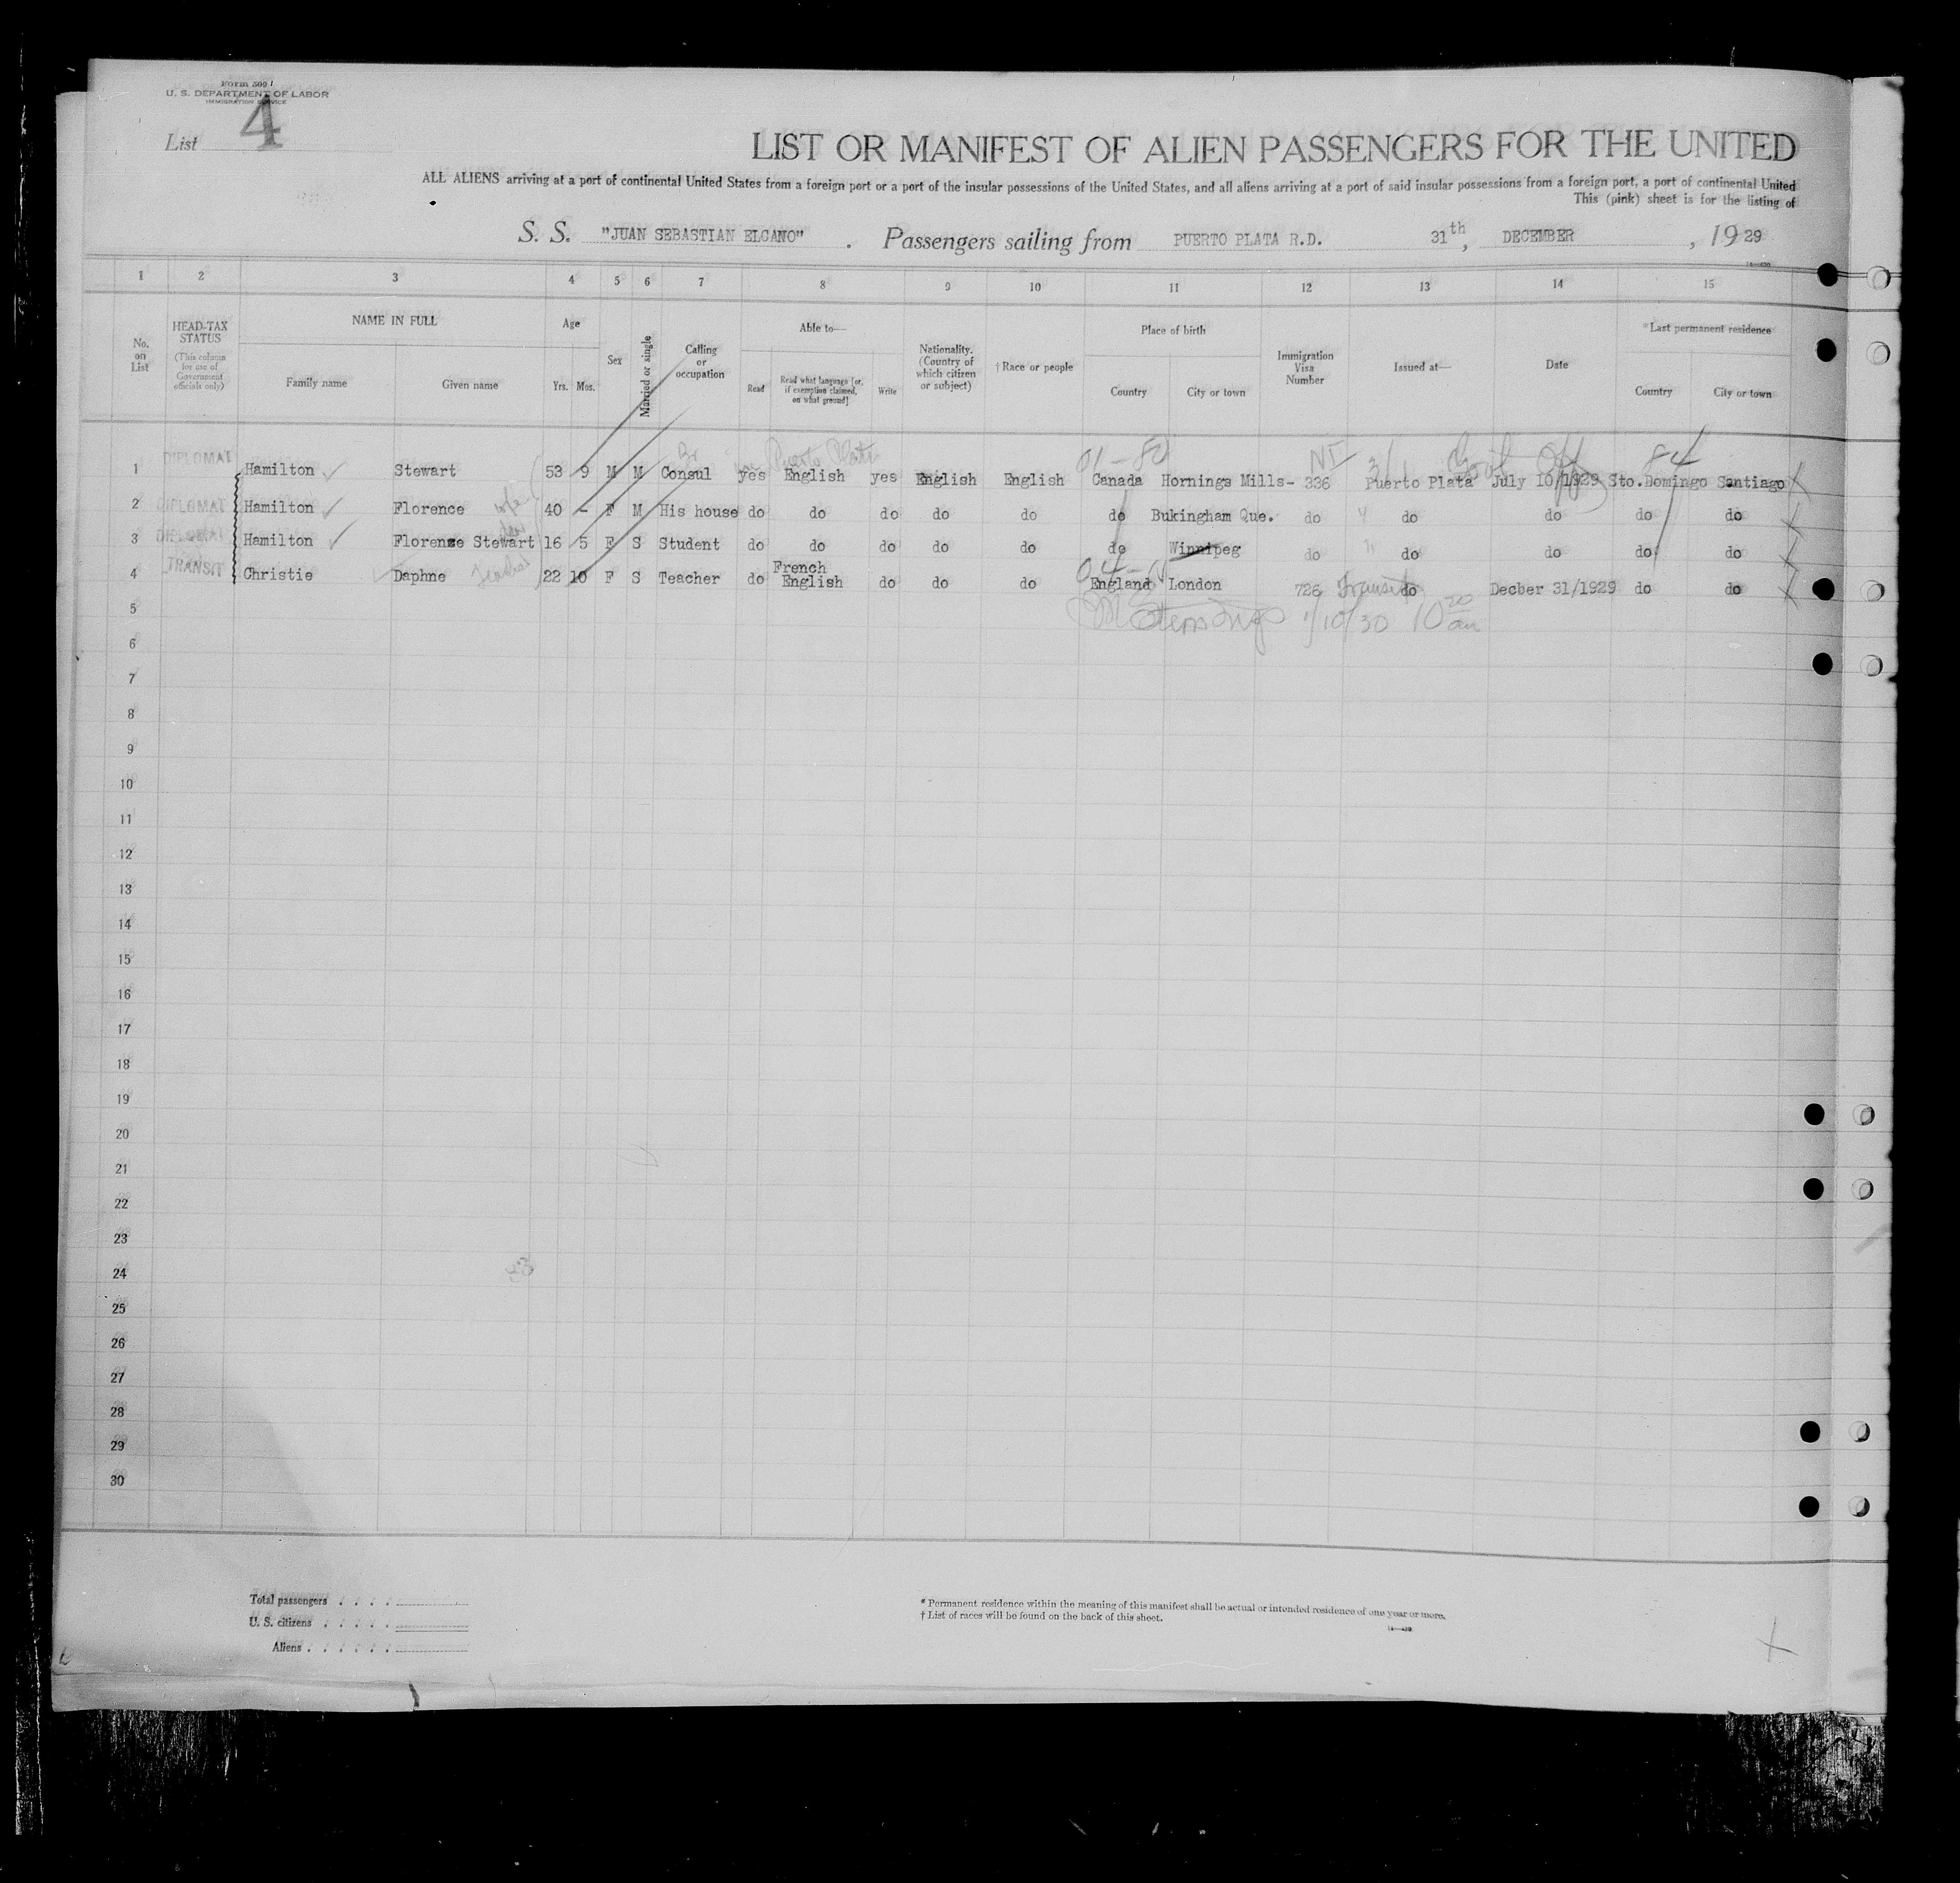 Form 500
U. S. DEPARTMENT OF LABOR
IMMIGRATION SERVICE
List 4
LIST OR MANIFEST OF ALIEN PASSENGERS FOR THE UNITED
ALL ALIENS arriving at a port of continental United States from a foreign port or a port of the insular possessions of the United States, and all aliens arriving at a port of said insular possessions from a foreign port, a port of continental United
This (pink) sheet is for the listing of
S. S. "JUAN SEBASTIAN ELCANO" . Passengers sailing from PUERTO PLATA R.D. 31th, DECEMBER , 1929
1 2 3 4 5 6 7 8 9 10 11 12 13 14 15
No. on List
HEAD-TAX STATUS (This column for use of Government officials only)
NAME IN FULL
Family name Given name
Age
Yrs. Mos.
Sex
Married or single
Calling or occupation
Able to—
Read Read what language [or, if exemption claimed, on what ground] Write
Nationality. (Country of which citizen or subject)
†Race or people
Place of birth
Country City or town
Immigration Visa Number
Issued at—
Date
*Last permanent residence
Country City or town
Br Puerto Plata 01-80 NI 84
1 DIPLOMAT Hamilton Stewart 53 9 M M Consul yes English yes English English Canada Hornings Mills- 336 Puerto Plata July 10/1929 Sto.Domingo Santiago
2 DIPLOMAT Hamilton Florence wife 40 - F M His house do do do do do do Bukingham Que. do do do do do
3 DIPLOMAT Hamilton Florenze Stewart 16 5 F S Student do do do do do do Winnipeg do do do do do
4 TRANSIT Christie Daphne 22 10 F S Teacher do French English do do do England London 726 Transit do Decber 31/1929 do do
1/10/30 10 20 am
5
6
7
8
9
10
11
12
13
14
15
16
17
18
19
20
21
22
23
24
25
26
27
28
29
30
Total passengers . . . .
U. S. citizens . . . . .
Aliens . . . . . .
* Permanent residence within the meaning of this manifest shall be actual or intended residence of one year or more.
† List of races will be found on the back of this sheet.